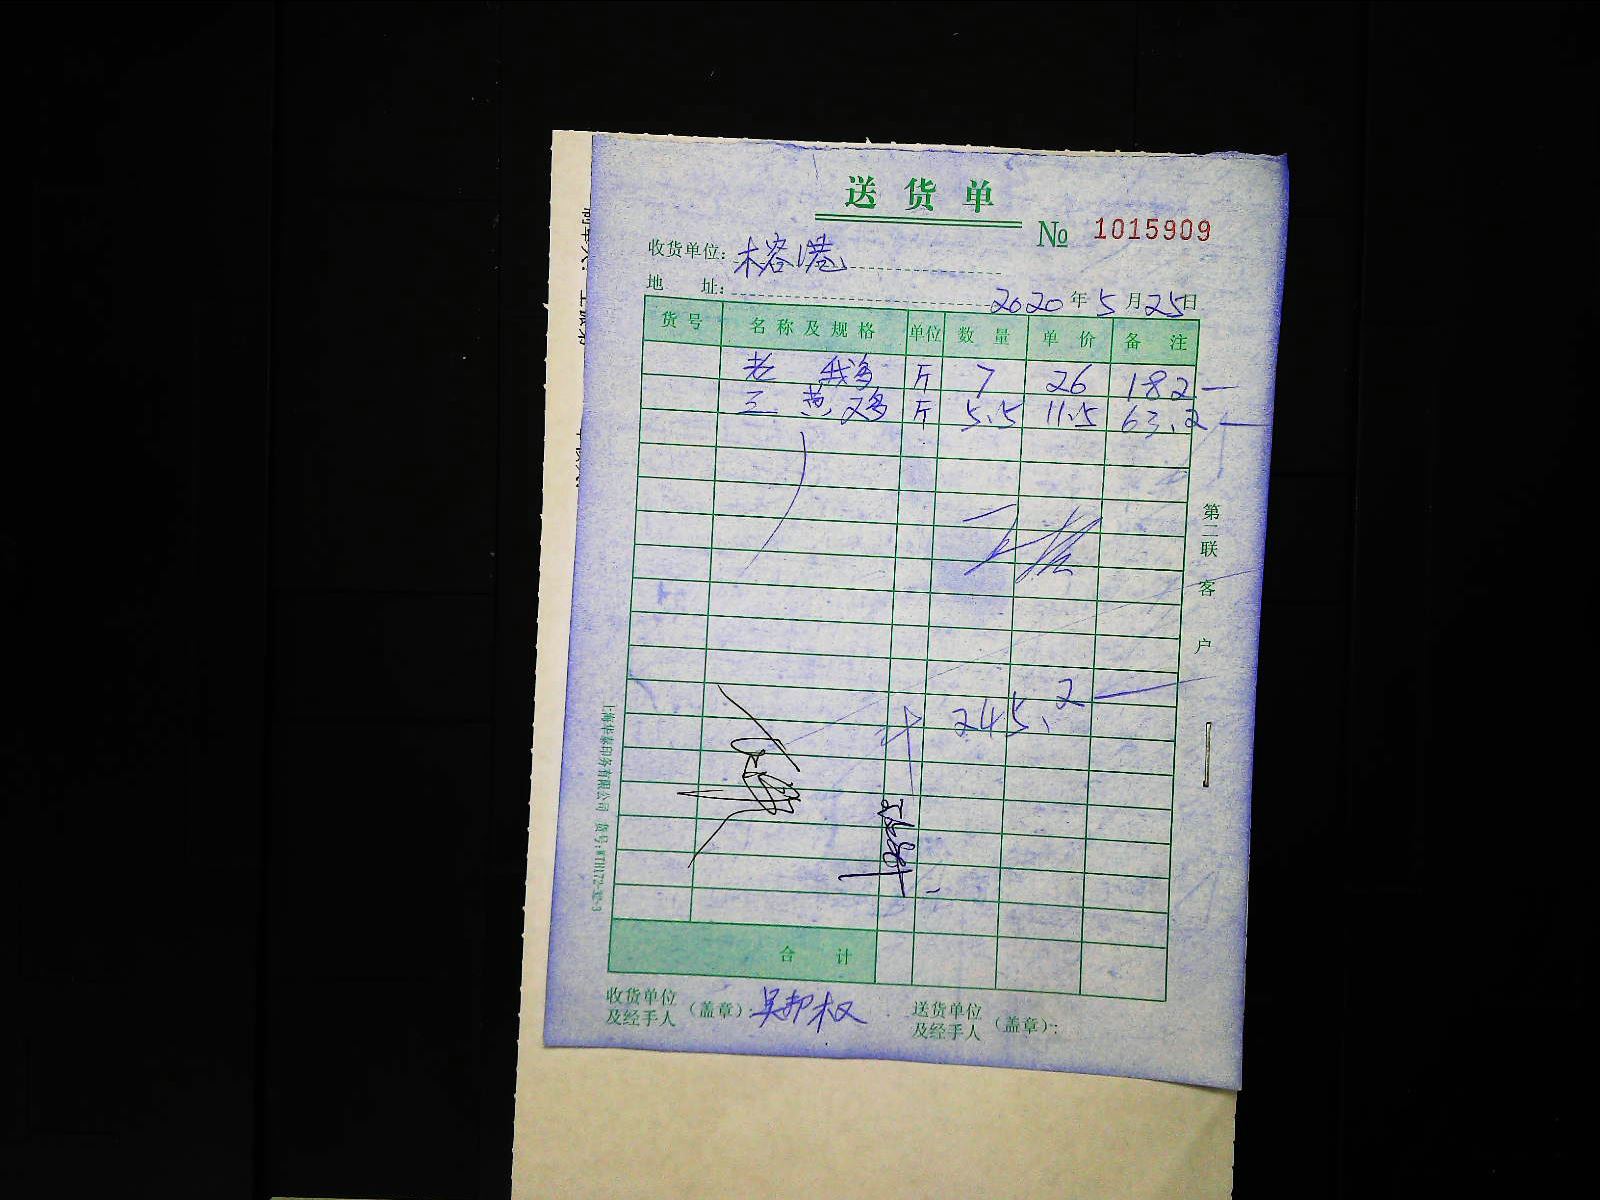 送货单
№ 1015909
收货单位: 榕港
地 址: 2020年5月25日
货号 名称及规格 单位 数量 单价 备注
老 鹅 斤 7 26 182—
三黄鸡 斤 5.5 11.5 63.2—
计 245.2—
合 计
收货单位及经手人（盖章）: 吴邦权
送货单位及经手人（盖章）:
第二联 客户
上海华泰印务有限公司 货号:WTH172-32-3